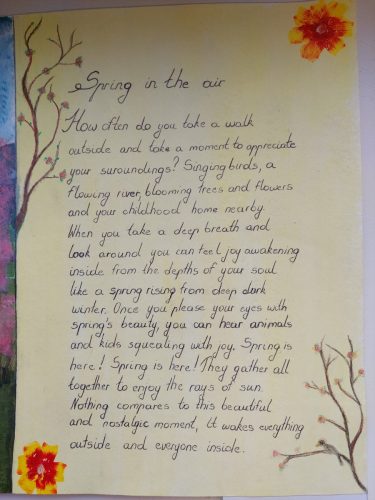 Spring in the air
How often do you take a walk
outside and take a moment to appreciate
your suroundings? Singing birds, a
flowing river, blooming trees and flowers
and your childhood home nearby.
When you take a deep breath and
look around you can feel joy awakening
inside from the depths of your soul
like a spring rising from deep dark
winter. Once you please your eyes with
spring's beauty, you can hear animals
and kids squealing with joy. Spring is
here! Spring is here! They gather all
together to enjoy the rays of sun.
Nothing compares to this beautiful
and nostalgic moment, it wakes everything
outside and everyone inside.